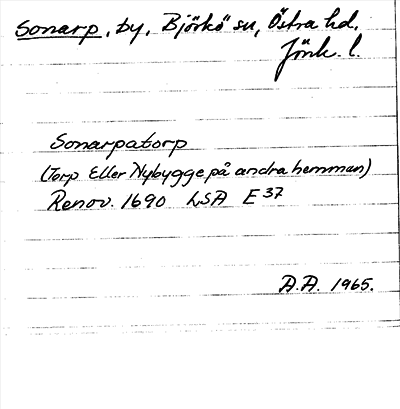 Sonarp, by, Björkö sn, Östra hd.
Jönk. l.
Sonarpatorp
(Torp Eller Nybygge på andra hemman)
Renov. 1690 LSA E 37
A.A. 1965.